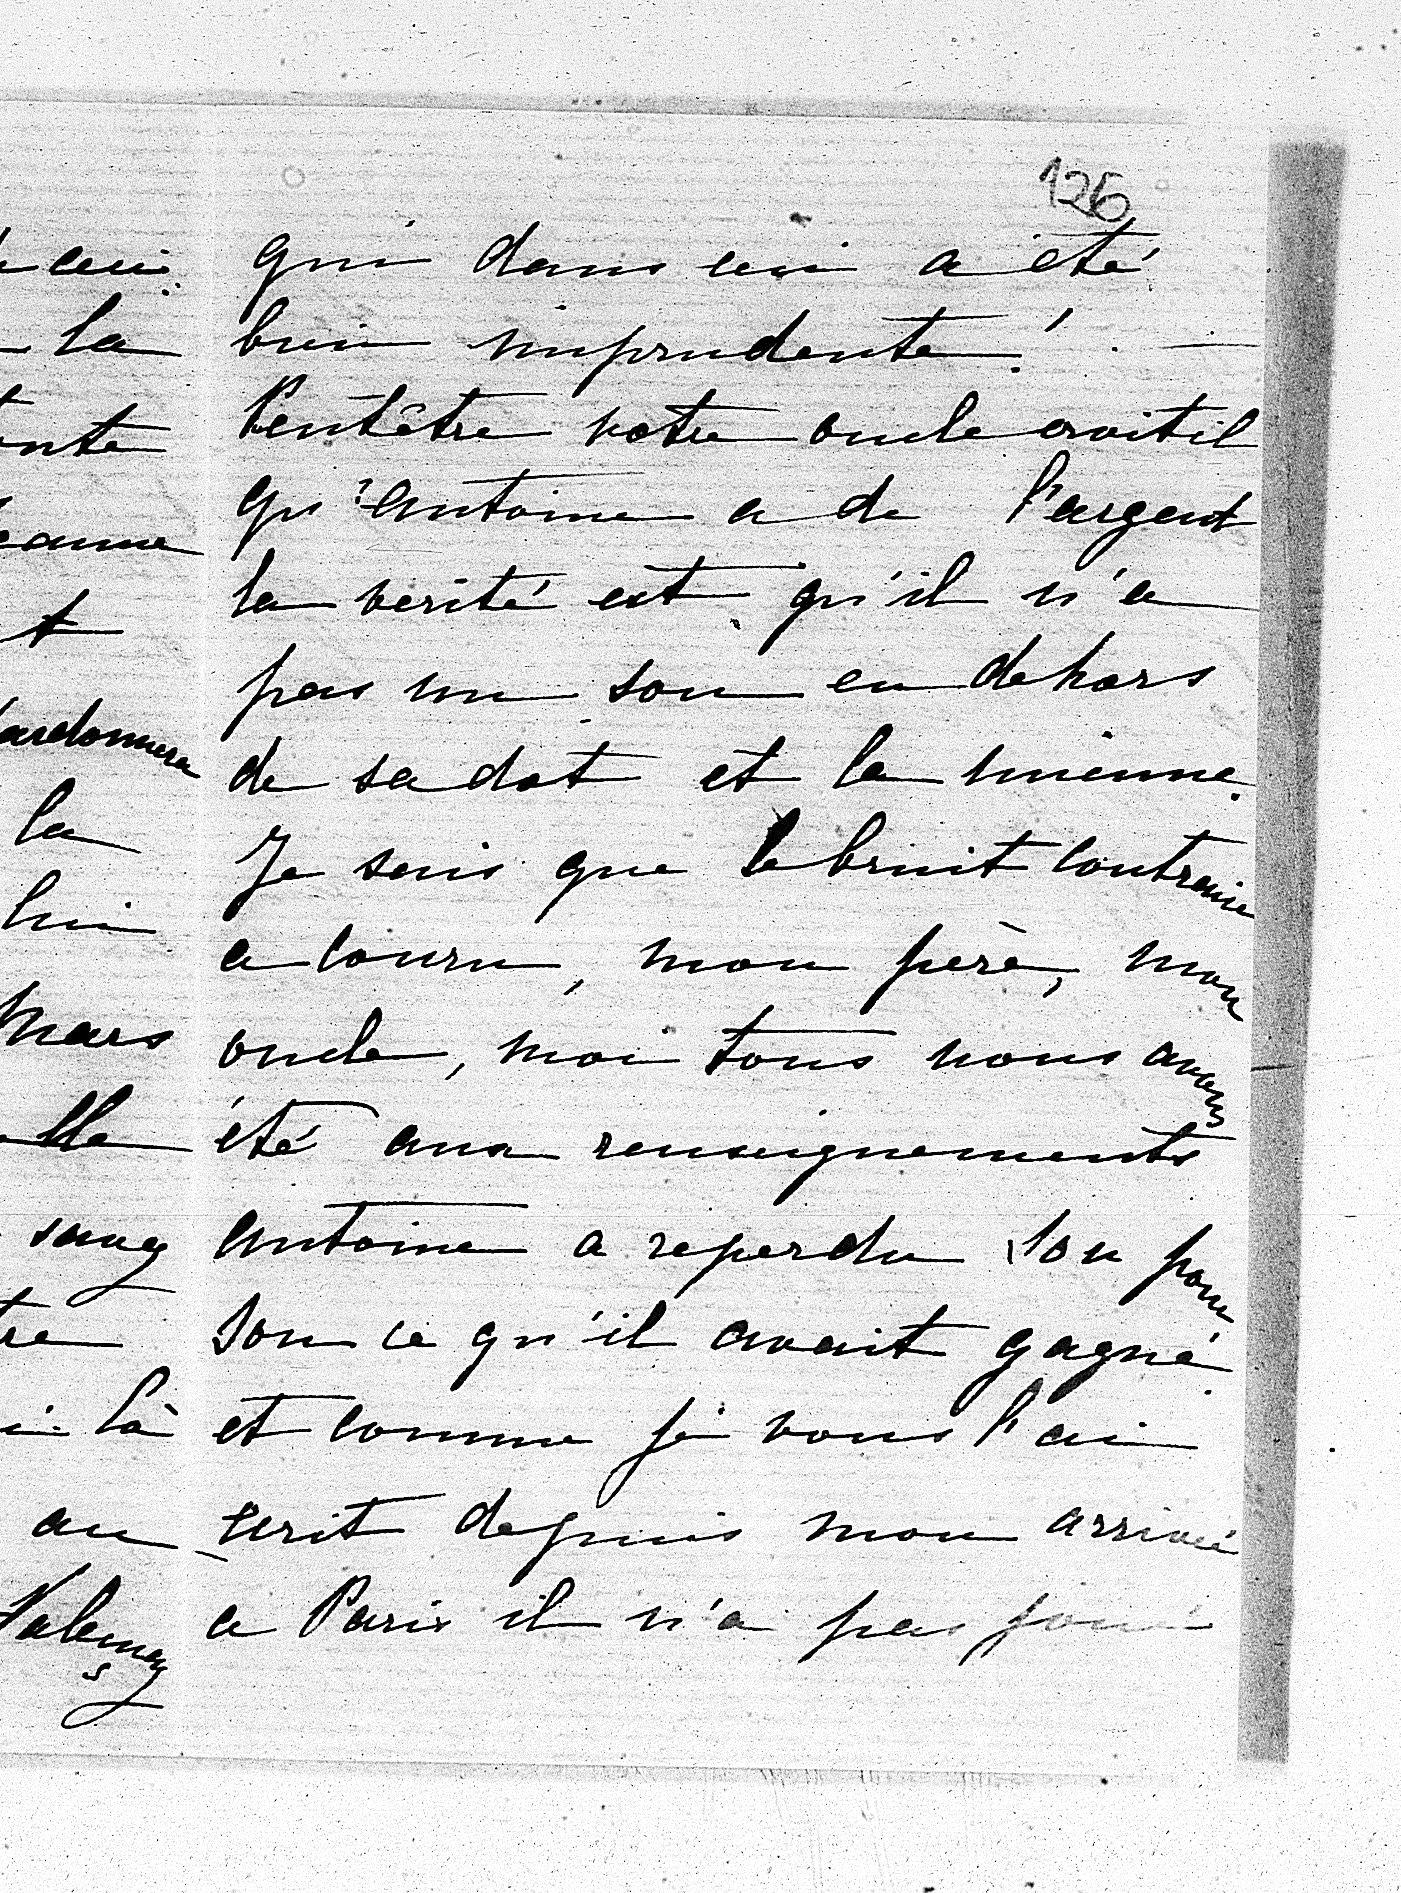 126
qui dans ceci a été
bien imprudente! —
Peutêtre votre oncle croit il
qu'Antoine a de l'argent
la vérité est qu'il n'a
pas un sou en dehors
de sa dot et la mienne.
Je sais que le bruit contraire
a couru, mon père, mon
oncle, moi tous nous avons
été aux renseignements
Antoine a reperdu sou pour
sou ce qu'il avait gagné.
et comme je vous l'ai
écrit depuis mon arrivée
a Paris il n'a pas joué
ceci
la
t
ardonnera
la
lui
Mars
lle
sang
là
au